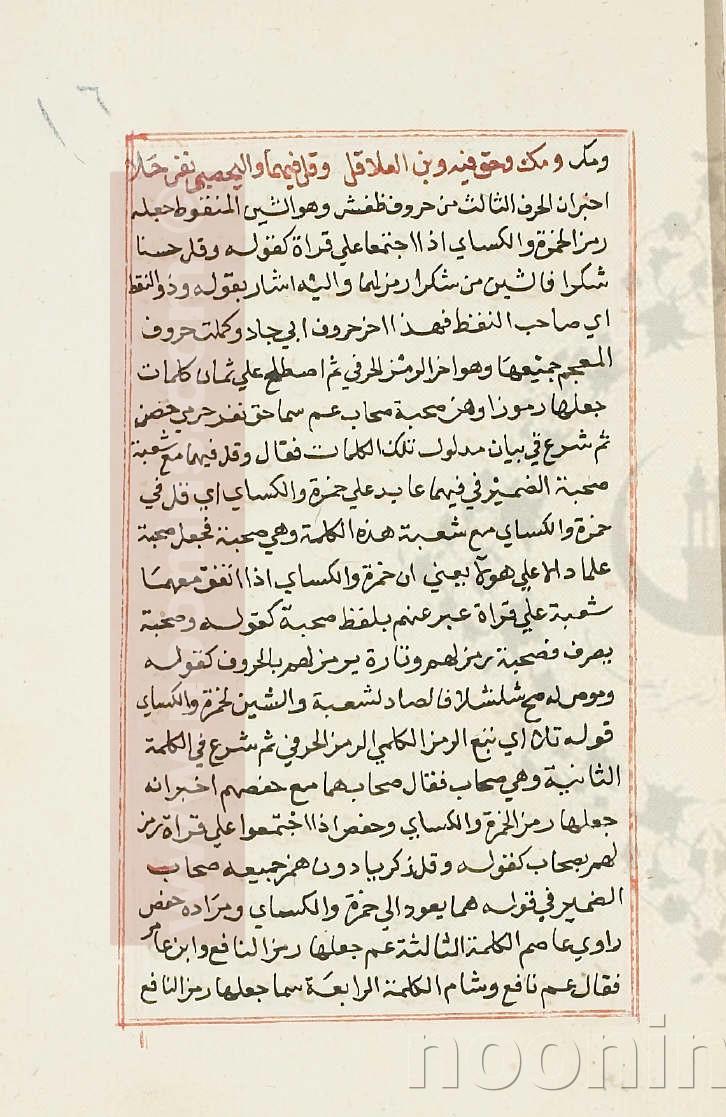 ١٦
ومك ومكث وحق فيه وبن العلا قل وقل فيهما واليحصبي نفر حلا
اخبر ان الحرف الثالث من حروف ظغش وهو الشين المنقوط جعله
رمز الحمزة والكساي اذا اجتمعا علي قراة كقوله وقل حسنا
شكرا فالشين من شكرا رمز لهما واليه اشار بقوله وذو النقط
اي صاحب النقط فهذا اخر حروف ابي جاد وكملت حروف
المعجم جميعها وهو اخر الرمز الحرفي ثم اصطلح علي ثمان كلمات
جعلها رموزا وهن صحبة صحاب عم سما حق نفر حرمي حصن
ثم شرع في بيان مدلول تلك الكلمات فقال وقل فيهما مع شعبة
صحبة الضمير في فيهما عايد علي حمزة والكساي اي قل في
حمزة والكساي مع شعبة هذه الكلمة وهي صحبة فجعل صحبة
علما دالا علي هولا يعني ان حمزة والكساي اذا اتفق معهما
شعبة علي قراة عبر عنهم بلفظ صحبة كقوله وصحبة
يصرف فصحبة رمز لهم وتارة يرمز لهم بالحروف كقوله
وموص له صح شلشلا فالصاد لشعبة والشين لحمزة والكساي
قوله تلا اي تبع الرمز الكلمي الرمز الحرفي ثم شرع في الكلمة
الثانية وهي صحاب فقال صحاب هما مع حفصهم اخبر انه
جعلها رمز الحمزة والكساي وحفص اذا اجتمعوا علي قراة رمز
لهم بصحاب كقوله وقل زكريا دون همز جميعه صحاب
الضمير في قوله هما يعود الي حمزة والكساي ومراده حفص
راوي عاصم الكلمة الثالثة عم جعلها رمزا لنافع وابن عامر
فقال عم نافع وشام الكلمة الرابعة سما جعلها رمزا لنافع
noonim